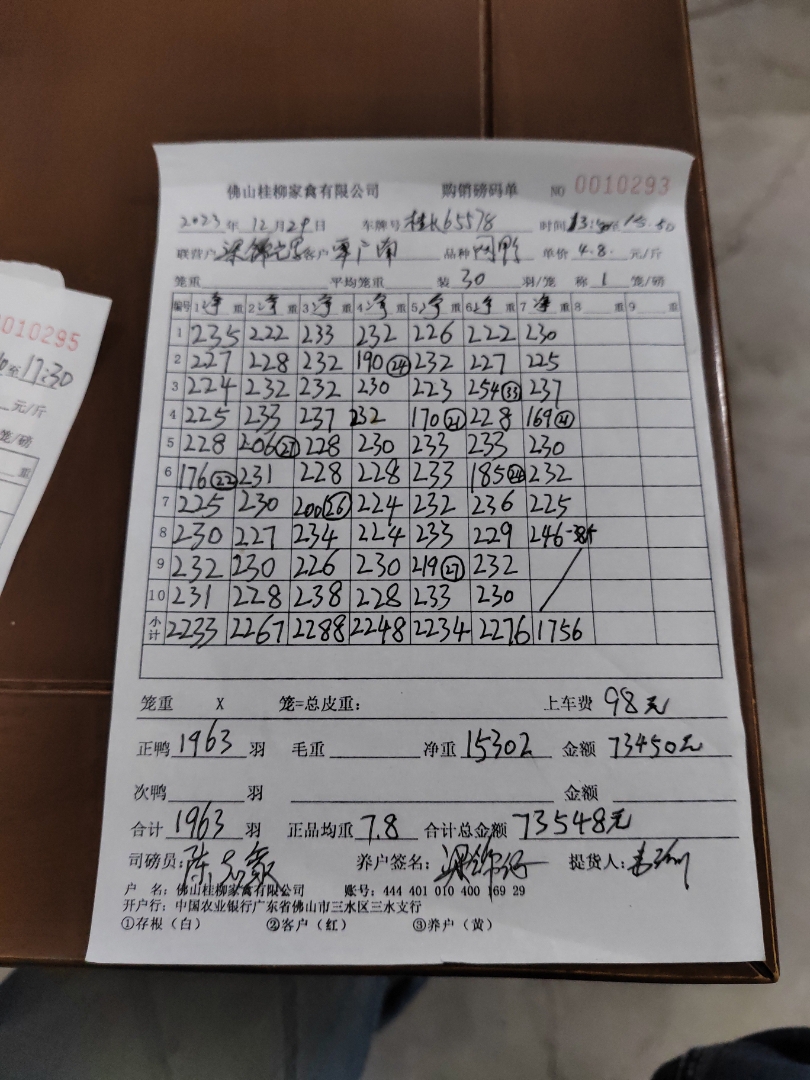 佛山桂柳家禽有限公司 购销磅码单 NO 0010293
2023年12月29日 车牌号桂K65578 时间13: 至15:50
联营户 客户覃广南 品种 单价4.8.元/斤
笼重 平均笼重 装30羽/笼 称1笼/磅
编号 1净重 2净重 3净重 4净重 5净重 6净重 7净重 8重 9重
1 235 222 233 232 226 222 230
2 227 228 232 190(24) 232 227 225
3 224 232 232 230 223 254(33) 237
4 225 233 237 232 170(21) 228 169(21)
5 228 206(27) 228 230 233 233 230
6 176(22) 231 228 228 233 185(24) 232
7 225 230 200(26) 224 232 236 225
8 230 227 234 224 233 229 246
9 232 230 226 230 219(27) 232
10 231 228 238 228 233 230
小计 2233 2267 2288 2248 2234 2276 1756
笼重 X 笼=总皮重: 上车费 98元
正鸭1963羽 毛重 净重15302 金额73450元
次鸭 羽 金额
合计1963羽 正品均重7.8 合计总金额73548元
司磅员: 养户签名: 提货人:
户 名: 佛山桂柳家禽有限公司 账号: 444 401 010 400 169 29
开户行: 中国农业银行广东省佛山市三水区三水支行
①存根(白) ②客户(红) ③养户(黄)
010295
至17:30
元/斤
笼/磅
重